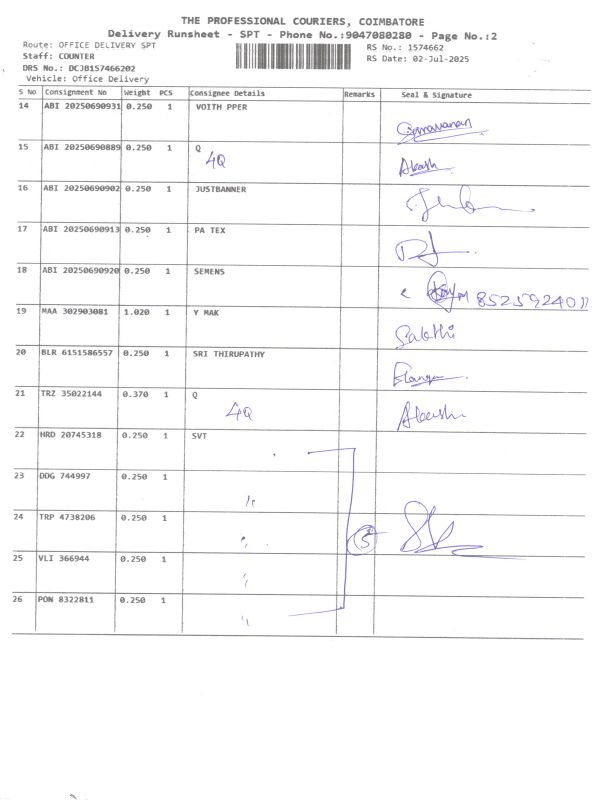 THE PROFESSIONAL COURIERS, COIMBATORE
Delivery Runsheet - SPT - Phone No.:9047080280 - Page No.:2
Route: OFFICE DELIVERY SPT
RS No.: 1574662
Staff: COUNTER
RS Date: 02-Jul-2025
DRS No.: DCJB1S7466202
Vehicle: Office Delivery
S No Consignment No Weight PCS Consignee Details Remarks Seal & Signature
14 ABI 20250690931 0.250 1 VOITH PPER
15 ABI 20250690889 0.250 1 Q
4Q Akash
16 ABI 20250690902 0.250 1 JUSTBANNER
17 ABI 20250690913 0.250 1 PA TEX
18 ABI 20250690920 0.250 1 SEMENS
19 MAA 302903081 1.020 1 Y MAK
Sakthi
20 BLR 6151586557 0.250 1 SRI THIRUPATHY
21 TRZ 35022144 0.370 1 Q
4Q Akash
22 HRD 20745318 0.250 1 SVT
23 DDG 744997 0.250 1
24 TRP 4738206 0.250 1
5
25 VLI 366944 0.250 1
26 PON 8322811 0.250 1